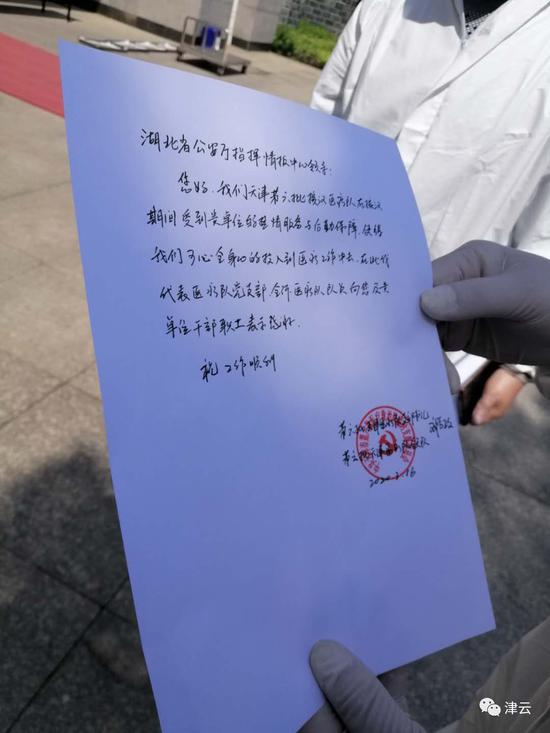 湖北省公安厅指挥情报中心领导:
您好,我们天津第六批援汉医疗队在援汉
期间受到贵单位的热情服务与后勤保障,使得
我们可以全身心的投入到医疗工作中去,在此我
代表医疗队党支部、全体医疗队队员向您及贵
单位干部职工表示感谢.
祝工作顺利
2020.3.16
津云